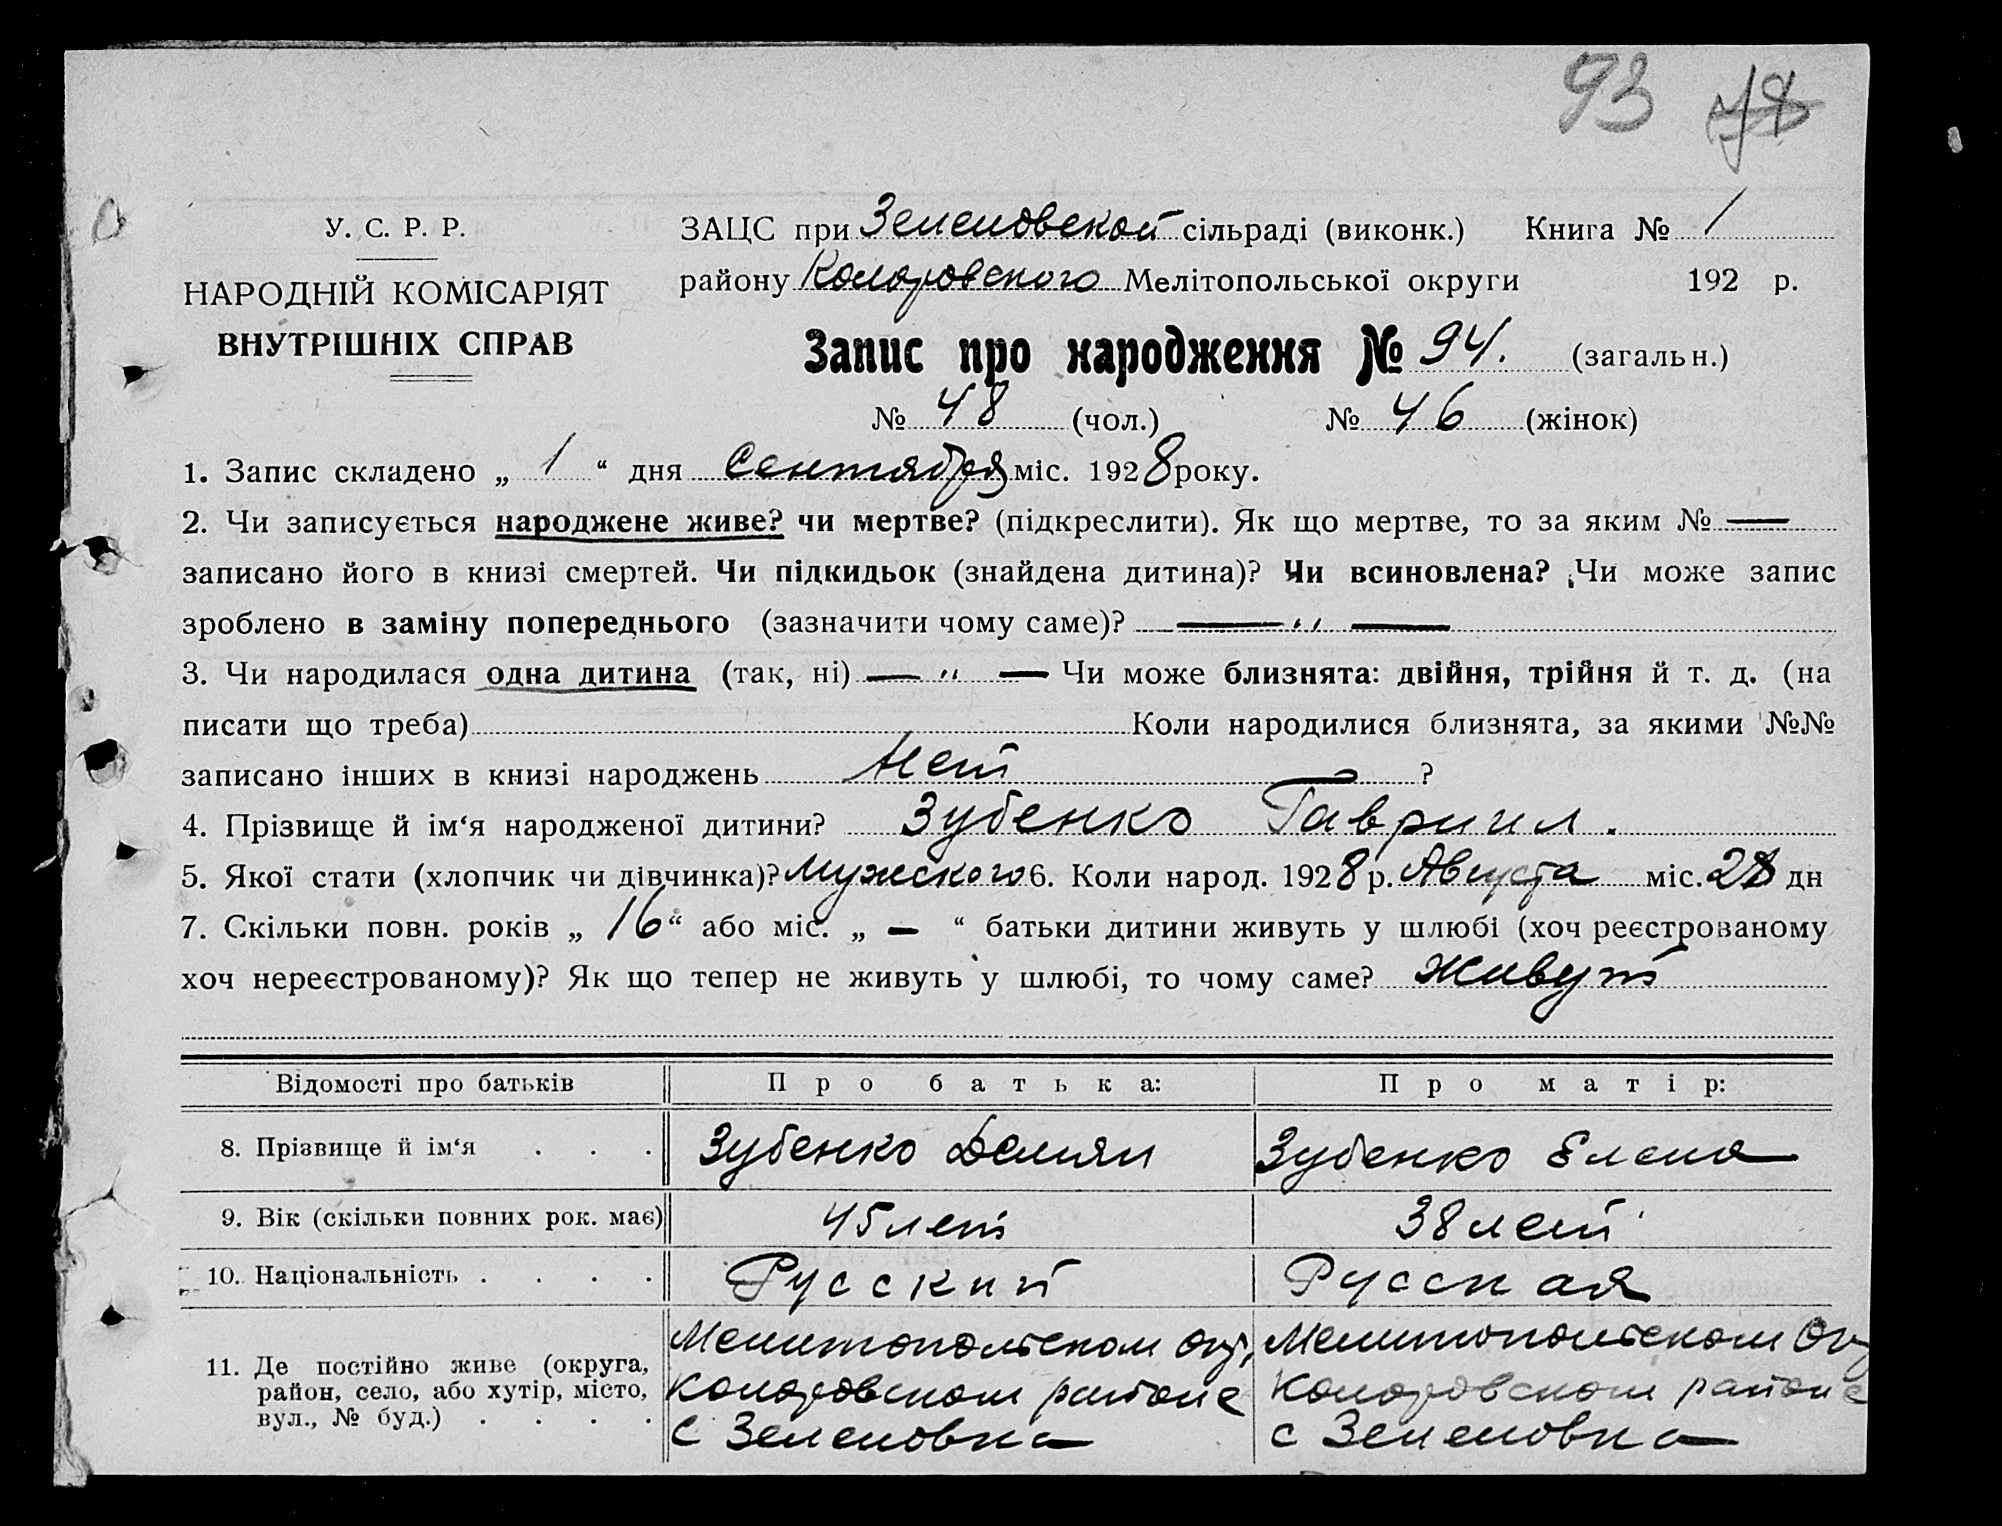 93 78
У. С. Р. Р.
НАРОДНІЙ КОМІСАРІЯТ
ВНУТРІШНІХ СПРАВ
ЗАЦС при Зеленовской сільраді (виконк.) Книга № 1
району Коларовского Мелітопольської округи 192 р.
Запис про народження № 94. (загальн.)
№ 48 (чол.) № 46 (жінок)
1. Запис складено „ 1 “ дня Сентября міс. 1928 року.
2. Чи записується народжене живе? чи мертве? (підкреслити). Як що мертве, то за яким № —
записано його в книзі смертей. Чи підкидьок (знайдена дитина)? Чи всиновлена? Чи може запис
зроблено в заміну попереднього (зазначити чому саме)? — „ —
3. Чи народилася одна дитина (так, ні) — „ — Чи може близнята: двійня, трійня й т. д. (на
писати що треба) Коли народилися близнята, за якими №№
записано інших в книзі народжень Нет — ?
4. Прізвище й ім‘я народженої дитини? Зубенко Гавриил.
5. Якої стати (хлопчик чи дівчинка)? Мужского 6. Коли народ. 1928 р. Августа міс. 28 дн
7. Скільки повн. років „ 16 “ або міс. „ — “ батьки дитини живуть у шлюбі (хоч реєстрованому
хоч нереєстрованому)? Як що тепер не живуть у шлюбі, то чому саме? Живут
Відомості про батьків Про батька: Про матір:
8. Прізвище й ім‘я . . . Зубенко Демян Зубенко Елена
9. Вік (скільки повних рок. має) 45 лет 38 лет
10. Національність . . . . Русский Русская
11. Де постійно живе (округа, район, село, або хутір, місто, вул., № буд.) . . . .
Мелитопольском окр,
Коларовском районе
с Зеленовка
Мелитопольском Ок
Коларовском районе
с Зеленовка